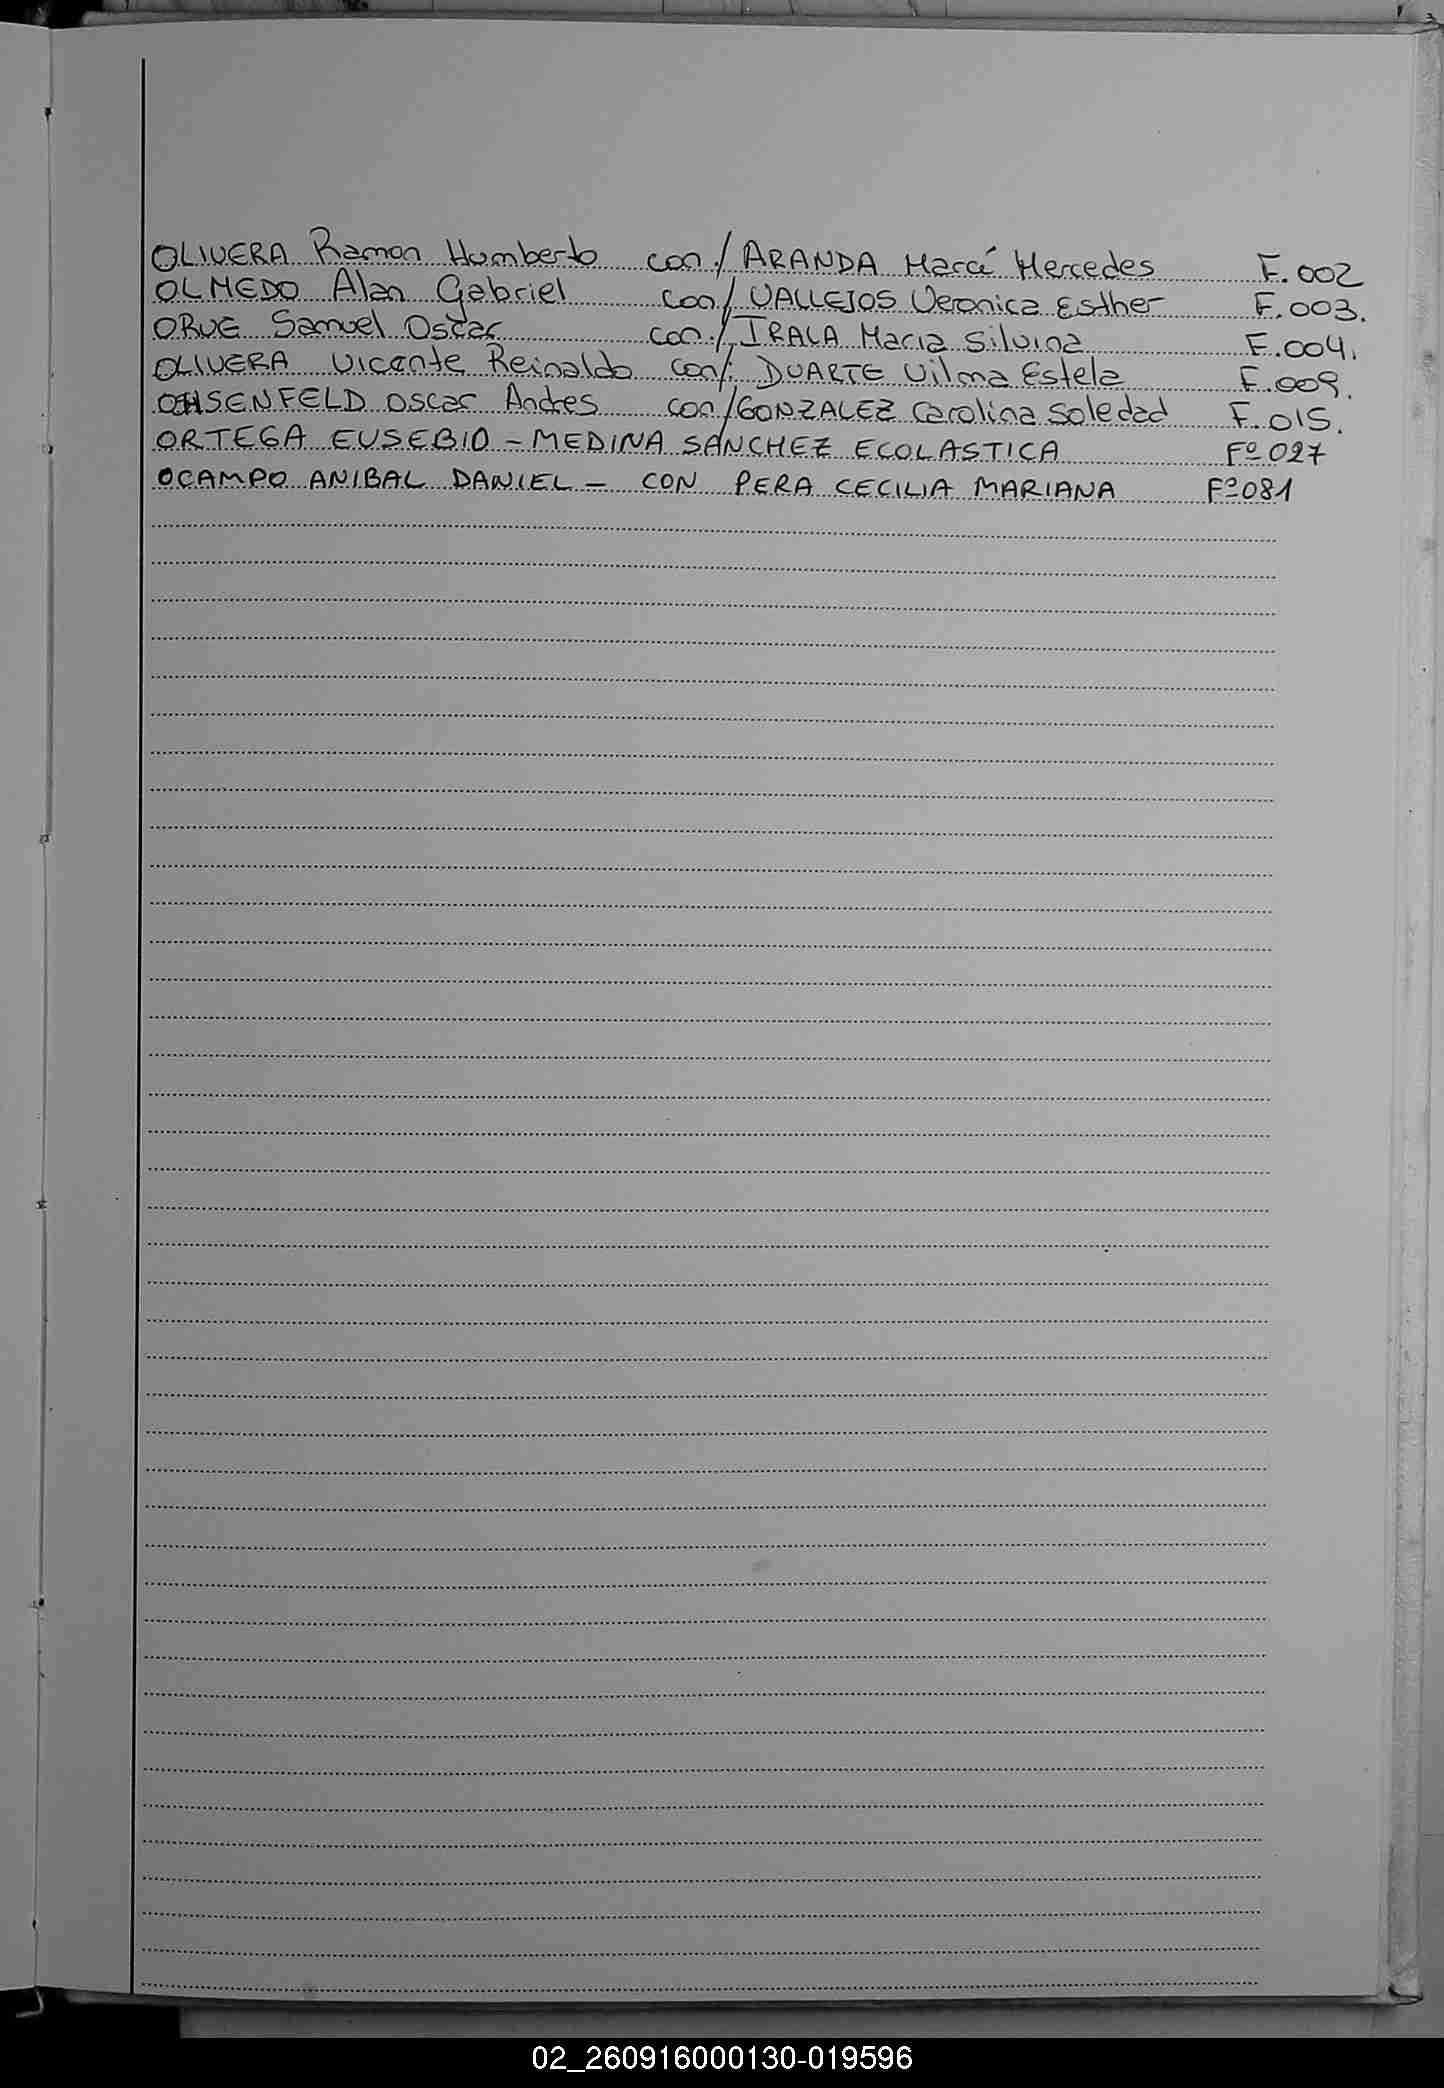 OLIVERA Ramon Humberto con/ ARANDA Mercedes F.002
OLMEDO Alan Gabriel con/ VALLEJOS Veronica Esther F.003.
ORUE Samuel Oscar con/ IRALA Maria Silvina F.004.
OLIVERA Vicente Reinaldo con/: DUARTE Vilma Estela F.009.
OHSENFELD Oscar Andres con/ GONZALEZ Carolina Soledad F.015.
ORTEGA EUSEBIO - MEDINA SANCHEZ ECOLASTICA Fº 027
OCAMPO ANIBAL DANIEL - CON PERA CECILIA MARIANA Fº 081
02_260916000130-019596